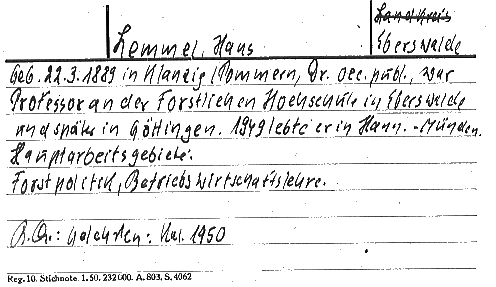 Landkreis
Lemmel, Hans Eberswalde
Geb. 22.3.1889 in Klanzig/Pommern, Dr. oec. publ., war
Professor an der Forstlichen Hochschule in Eberswalde
und später in Göttingen. 1949 lebte er in Hann.-Münden.
Hauptarbeitsgebiete:
Forstpolitik, Betriebswirtschaftslehre.
Gelehrten: Kal. 1950
Reg. 10. Stichnote. 1. 50. 232000. A. 803, S. 4062